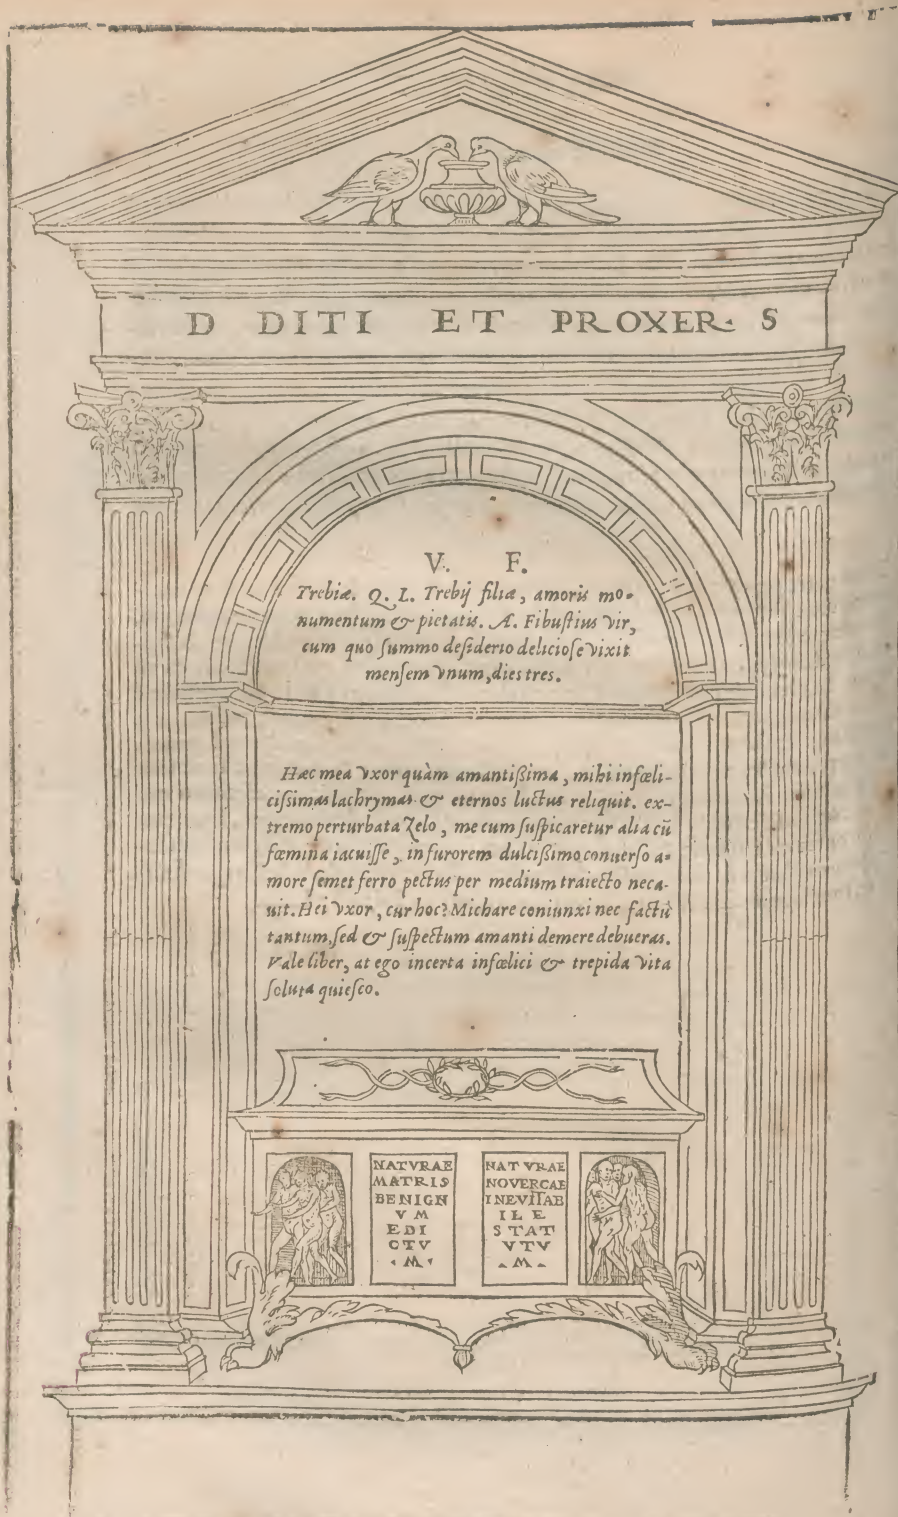 D DITI ET PROXER. S
V. F.
Trebiæ. Q. L. Trebij filiæ, amoris mo-
numentum & pietatis. A. Fibustius vir,
cum quo summo desiderio deliciose vixit
mensem vnum, dies tres.
Hæc mea vxor quàm amantißima, mihi infœli-
cissimas lachrymas & eternos luctus reliquit. ex-
tremo perturbata zelo, me cum suspicaretur alia cū
fœmina iacuisse, in furorem dulcißimo conuerso a-
more semet ferro pectus per medium traiecto neca-
uit. Hei vxor, cur hoc? Mi chare coniunxi nec factū
tantum, sed & suspectum amanti demere debueras.
Vale liber, at ego incerta infœlici & trepida vita
soluta quiesco.
NATVRAE
MATRIS
BENIGN
VM
EDI
CTV
M
NATVRAE
NOVERCAE
INEVITAB
ILE
STAT
VTV
M